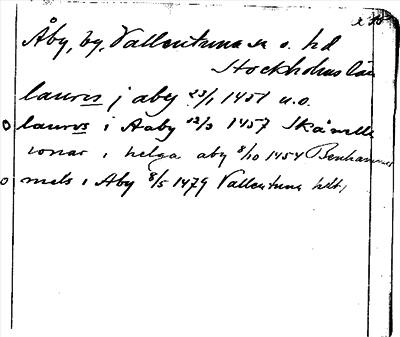 Åby, by, Vallentuna sn o. hd
Stockholms län
laures j aby 23/1 1451 u.o.
laurus i Aaby 12/3 1457 Skånella
ionar i helga aby 8/10 1454 Benhammar
niels i Aby 8/5 1479 Vallentuna hdt,